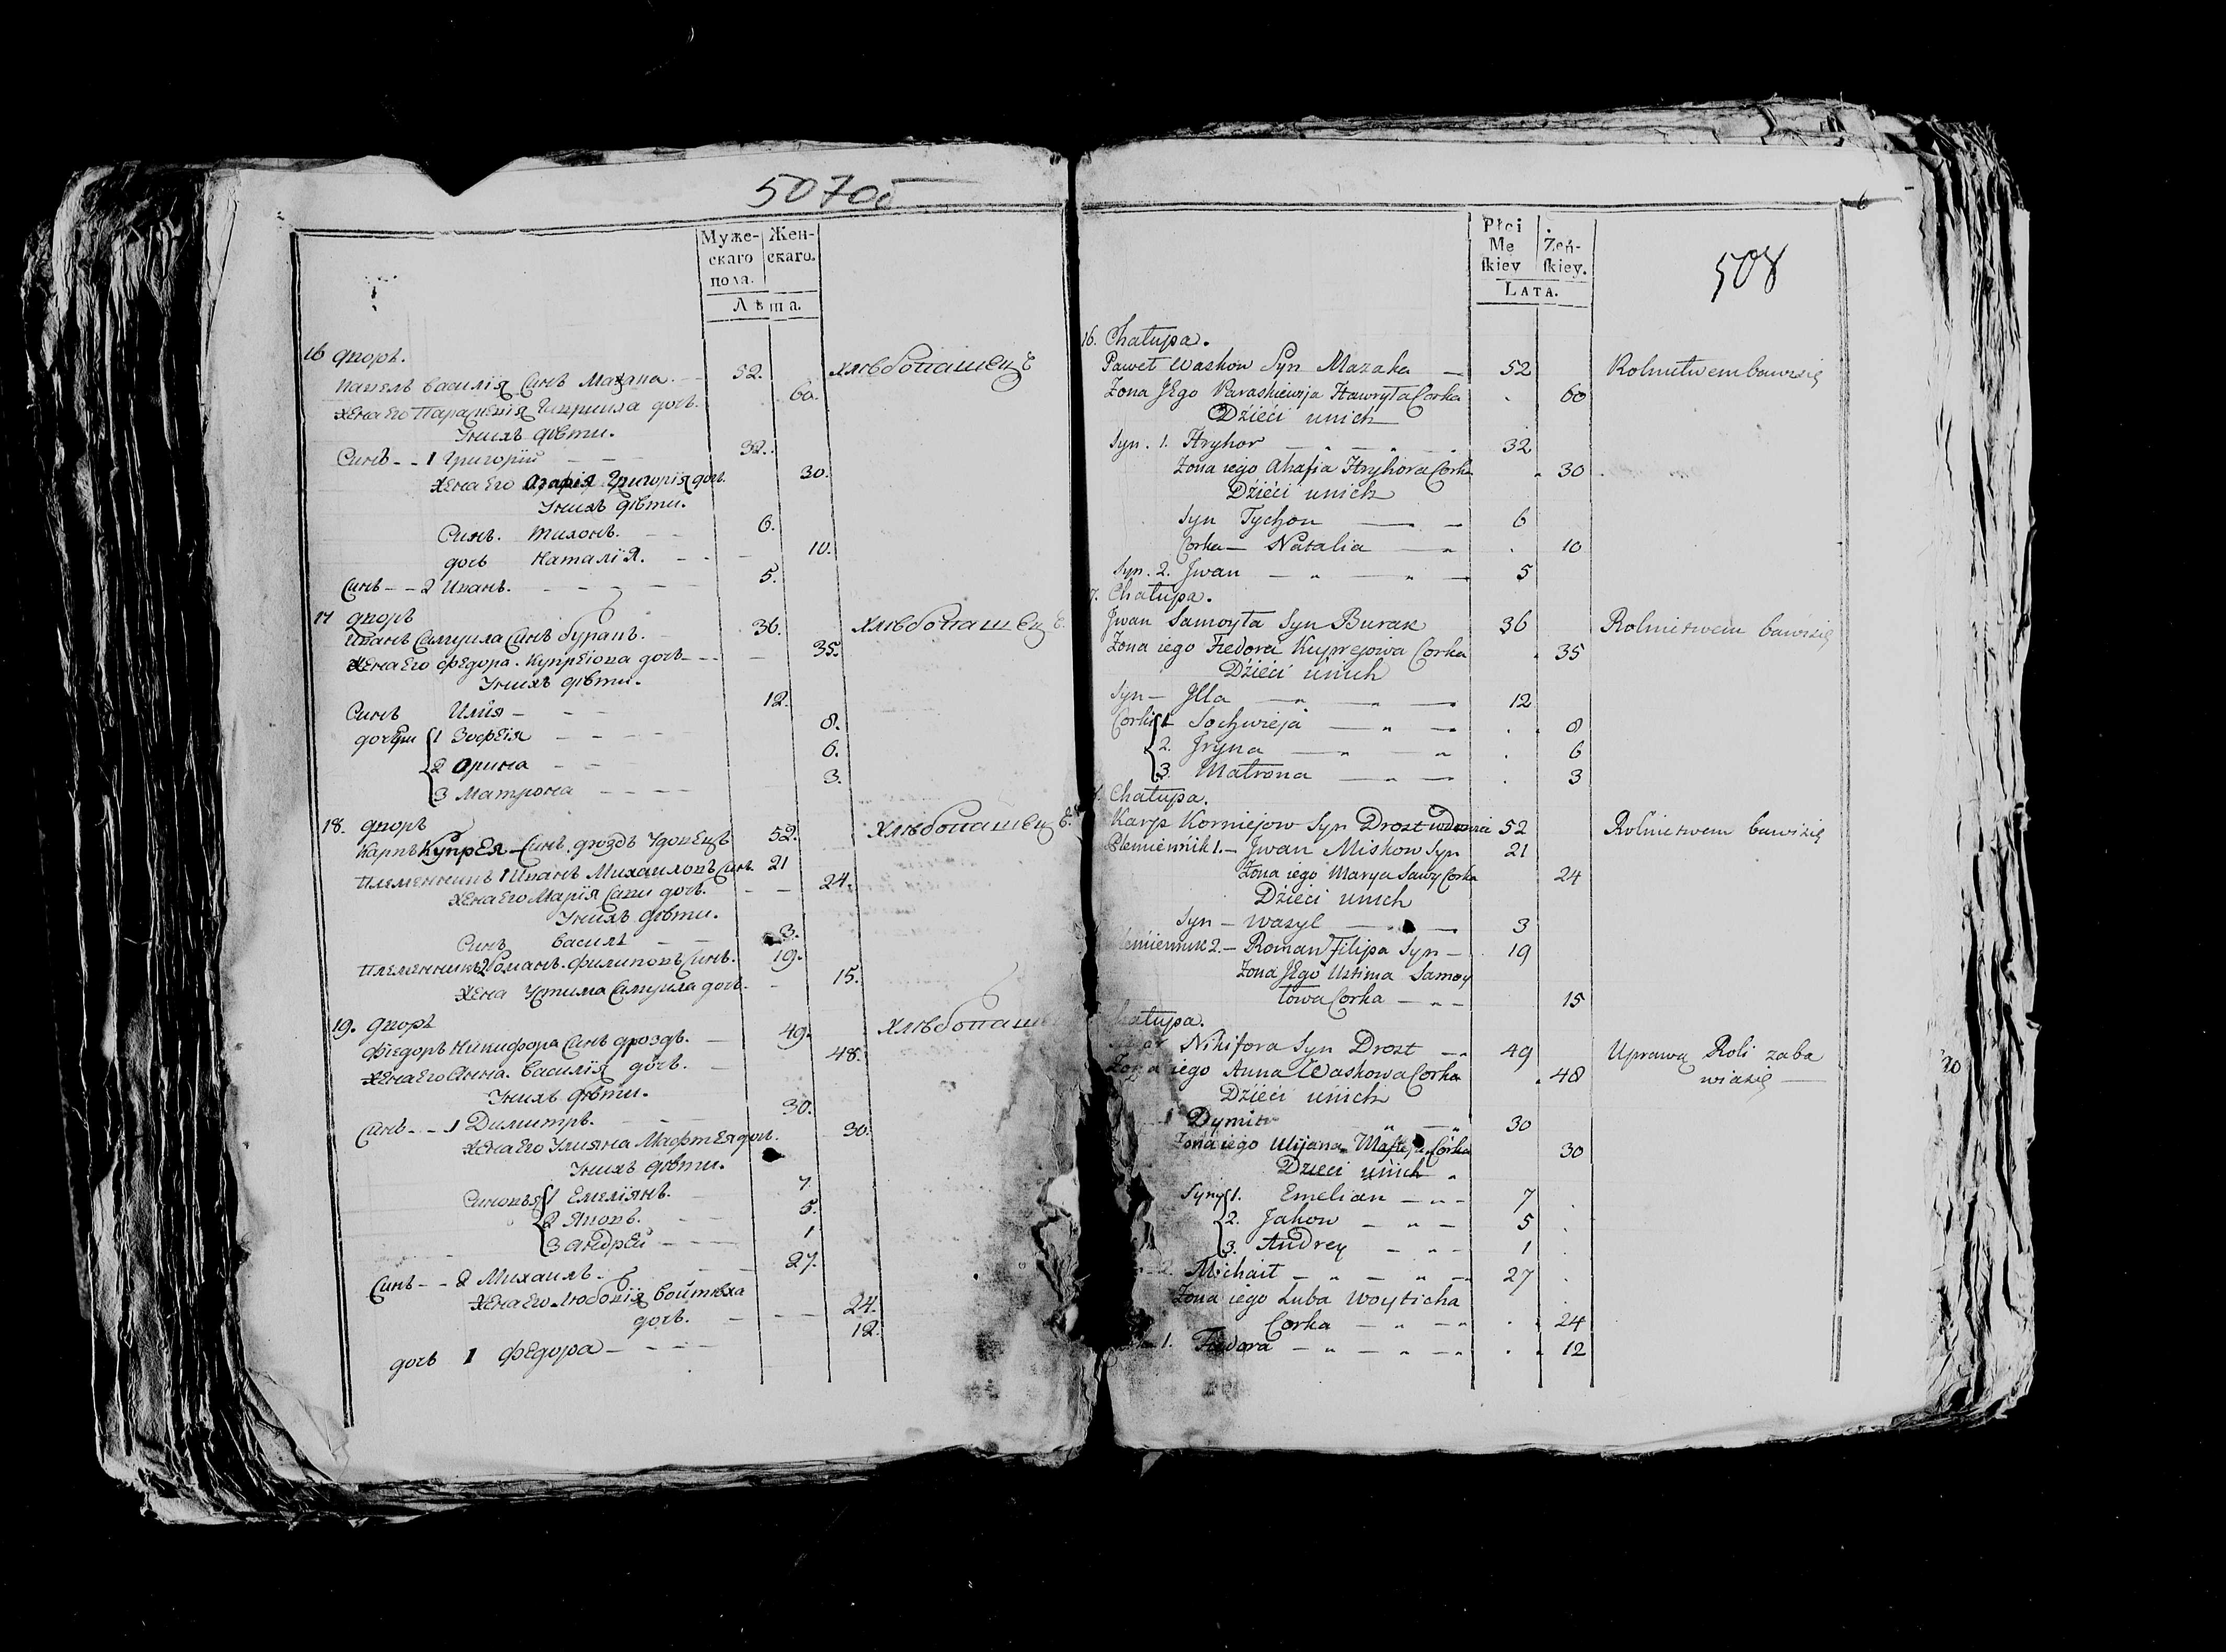 507об
Муже-
скаго
пола.
Жен-
скаго.
Лѣта.
16 дворъ.
Павелъ Василія Синъ Мазана. 52. хлѣбопашецъ
жена его Параскевія Гавриила дочь. 60.
У нихъ дѣти.
Синъ - - 1 Григорій 32.
жена его Агафія Григорія дочь. 30.
У нихъ дѣти.
Синъ. Тихонъ. 6.
дочь Наталія. 10.
Синъ - - 2 Иванъ. 5.
17 дворъ
Иванъ Самуила Синъ Буракъ. 36. хлѣбопашецъ
жена его Федора. Купреіова дочь 35.
У нихъ дѣти.
Синъ Илія 12.
дочери 1 Зофеія 8.
2 Орина 6.
3 Матрона 3.
18. дворъ
Карпъ Купрея Синъ. Дроздъ Удовецъ 52. хлѣбопашецъ
Племенникъ 1 Иванъ Михаиловъ Синъ. 21
жена его Марія Сави дочь. 24.
У нихъ дѣти.
Синъ Василь 3.
Племенникъ 2 Романъ. Филиповъ Синъ. 19.
жена Устима Самуила дочь. 15.
19. дворъ
Федоръ Никифора Синъ Дроздъ. 49. хлѣбопаш
жена его Анна. Василія дочь. 48.
У нихъ дѣти.
Синъ - - 1 Димитръ. 30.
жена его Улияна Мафтея дочь. 30.
У нихъ дѣти.
Синовья 1 Емеліянъ. 7
2 Яковъ. 5.
3 Андрей 1
Синъ - - 2 Михаилъ. 27.
жена его Любовія Войтѣха
дочь. 24.
дочь 1 Федора 12.
6
Płci
Mę
ſkiey
Żeń-
ſkiey.
LATA.
508
16. Chałupa.
Paweł Waskow Syn Mazaka 52 Rolnictwem bawi się
Żona Jego Paraskiewija Hawryła Corka 60
Dźieći u nich
Syn. 1. Hryhor 32
Żona iego Ahafia Hryhora Corka 30
Dźieći u nich
Syn Tychon 6
Corka Natalia 10
Syn. 2. Jwan 5
7. Chałupa.
Jwan Samoyła Syn Burak 36 Rolnictwem bawi się
Żona iego Fiedora Kuprejowa Corka 35
Dźieći u nich
Syn - Jlla 12
Corki 1. Sochwieja 8
2. Jryna 6
3. Matrona 3
Chałupa.
Karp Korniejow Syn Drozt wdowiec 52 Rolnictwem bawi się
Plemiennik 1. - Jwan Miskow Syn 21
Żona iego Marya Sawy Corka 24
Dźieći u nich
Syn - Wasyl 3
lemiennik 2. - Roman Filipa Syn - 19
Żona Jego Ustima Samoy
łowa Corka 15
hałupa.
Nikifora Syn Drozt 49 Uprawą Roli zaba
Żona iego Anna Waskowa Corka 48 wia się
Dźieći u nich
1 Dymitr 30
Żona iego Ulijana Mafteja Córka 30
Dzieci u nich
Syny 1. Emelian 7
2. Jakow 5
3. Andrey 1
2. Michait 27
Żona iego Luba Woyticha
Corka 24
1. Fiedora 12